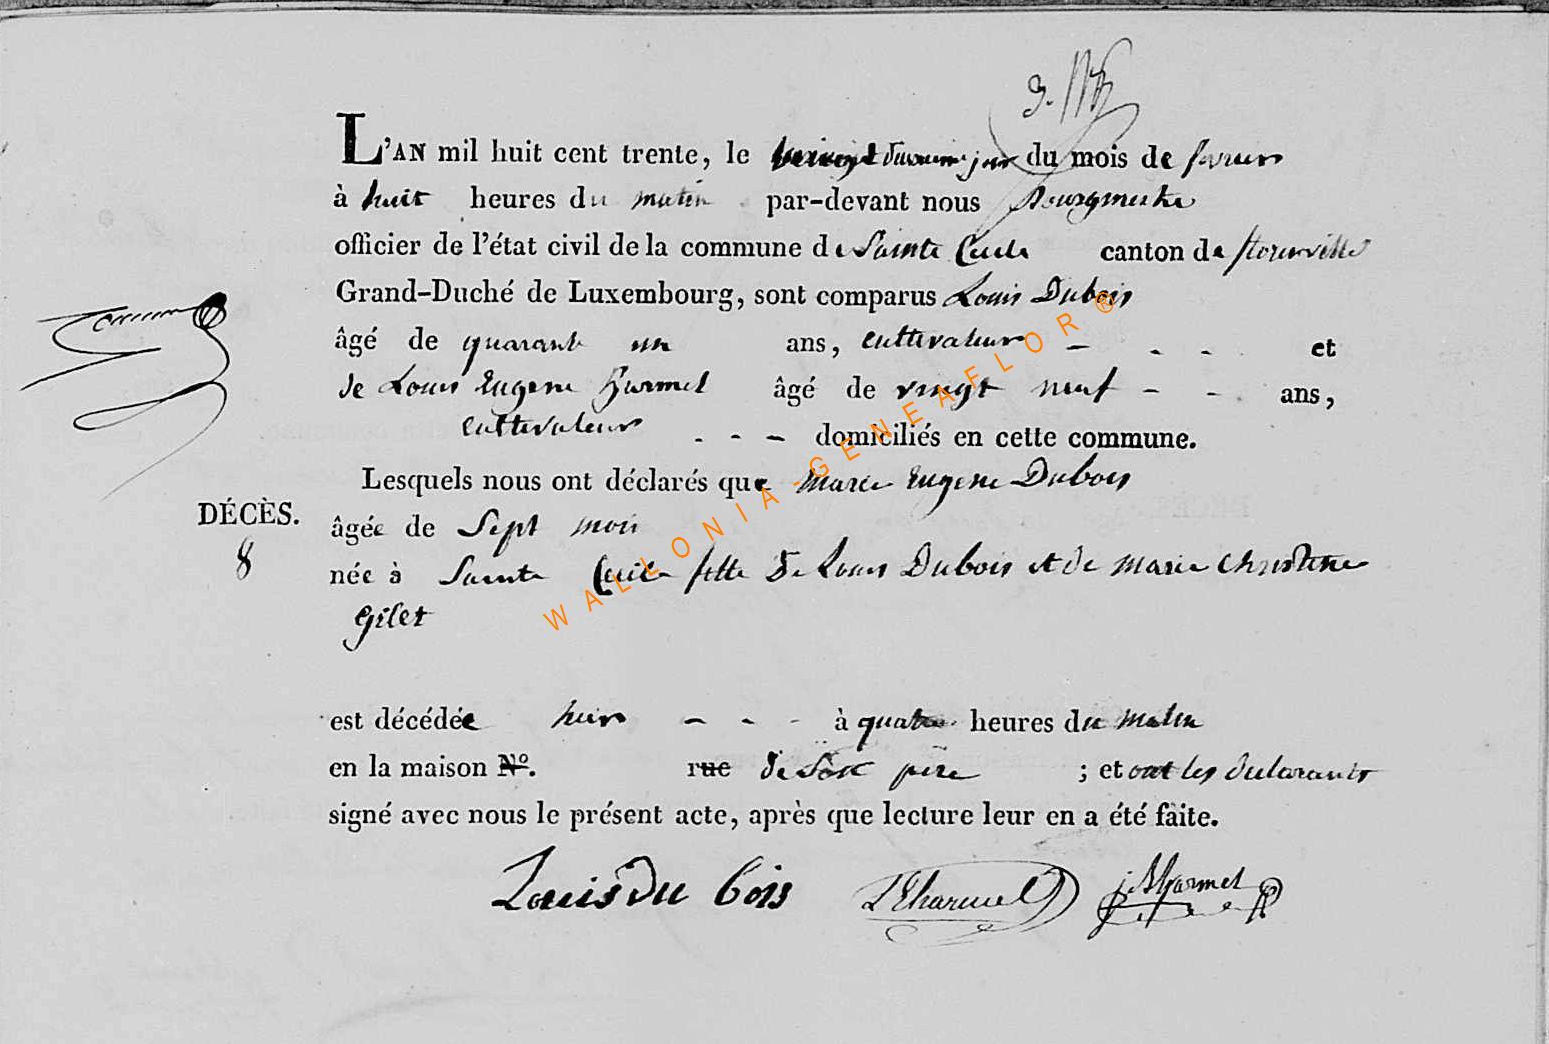 L'AN mil huit cent trente, le jour du mois de fevrier
à huit heures du matin par-devant nous Bourgmestre
officier de l'état civil de la commune de Sainte Cecile canton de florenville
Grand-Duché de Luxembourg, sont comparus Louis Dubois
âgé de quarante un ans, cultivateur - - - et
de Louis Eugene harmel âgé de vingt neuf - - ans,
cultivateur - - - domiciliés en cette commune.
Lesquels nous ont déclarés que Marie Eugene Dubois
DÉCÈS.
8
âgée de Sept mois
née à Sainte Cecile fille de Louis Dubois et de Marie Christine
Gilet
est décédée hier - - - à quatre heures du matin
en la maison N°. rue de son père ; et ont les declarants
signé avec nous le présent acte, après que lecture leur en a été faite.
Louis Du bois LEharmel harmel
WALLONIA-GENEAFLOR®